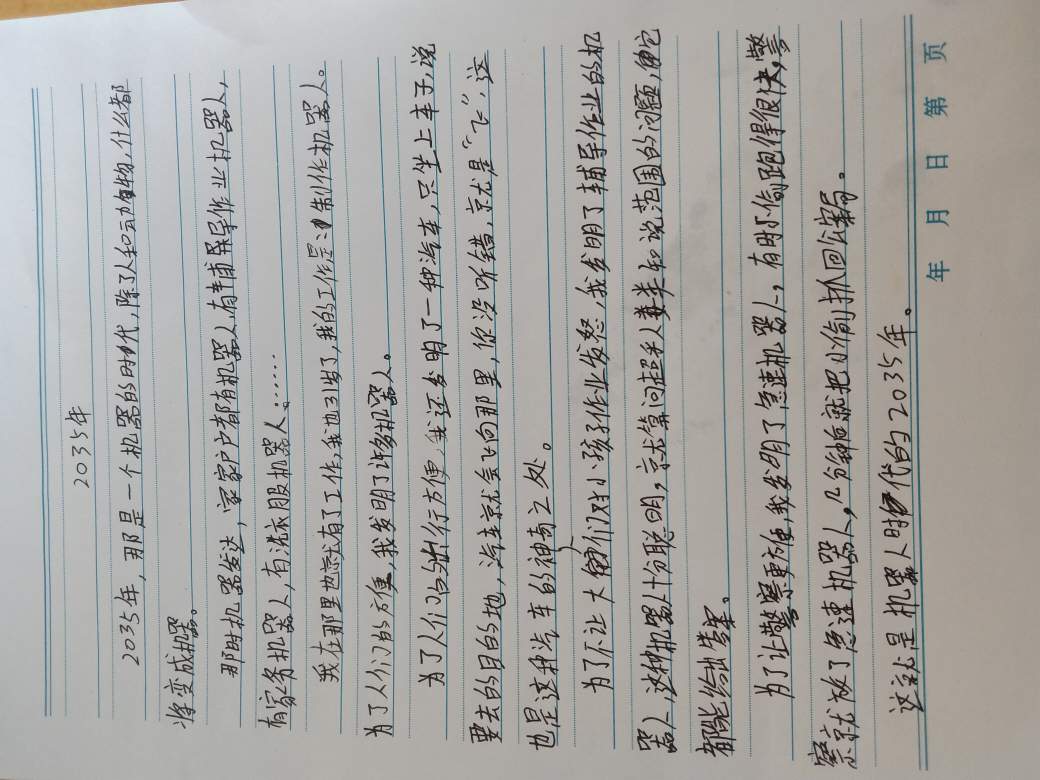 2035年
2035年，那是一个机器的时代，除了人和动植物，什么都
将变成机器。
那时机器发达，家家户户都有机器人，有辅导作业机器人，
有家务机器人，有洗衣服机器人……
我在那里也就有了工作，我也31岁了，我的工作是制作机器人。
为了人们的方便，我发明了许多机器人。
为了人们的出行方便，我还发明了一种汽车，只坐上车子，说
要去的目的地，汽车就会飞向那里，你没听错，就是“飞”，这
也是这种汽车的神奇之处。
为了不让大人们对小孩子作业发怒，我发明了辅导作业的机
器人，这种机器人十分聪明，就算问超乎人类知识范围的问题，它
都能给出答案。
为了让警察更方便，我发明了急速机器人，有时小偷跑得很快，警
察就放了急速机器人，几分钟后就把小偷抓回公安局。
这就是机器人时代的2035年。
年 月 日 第 页